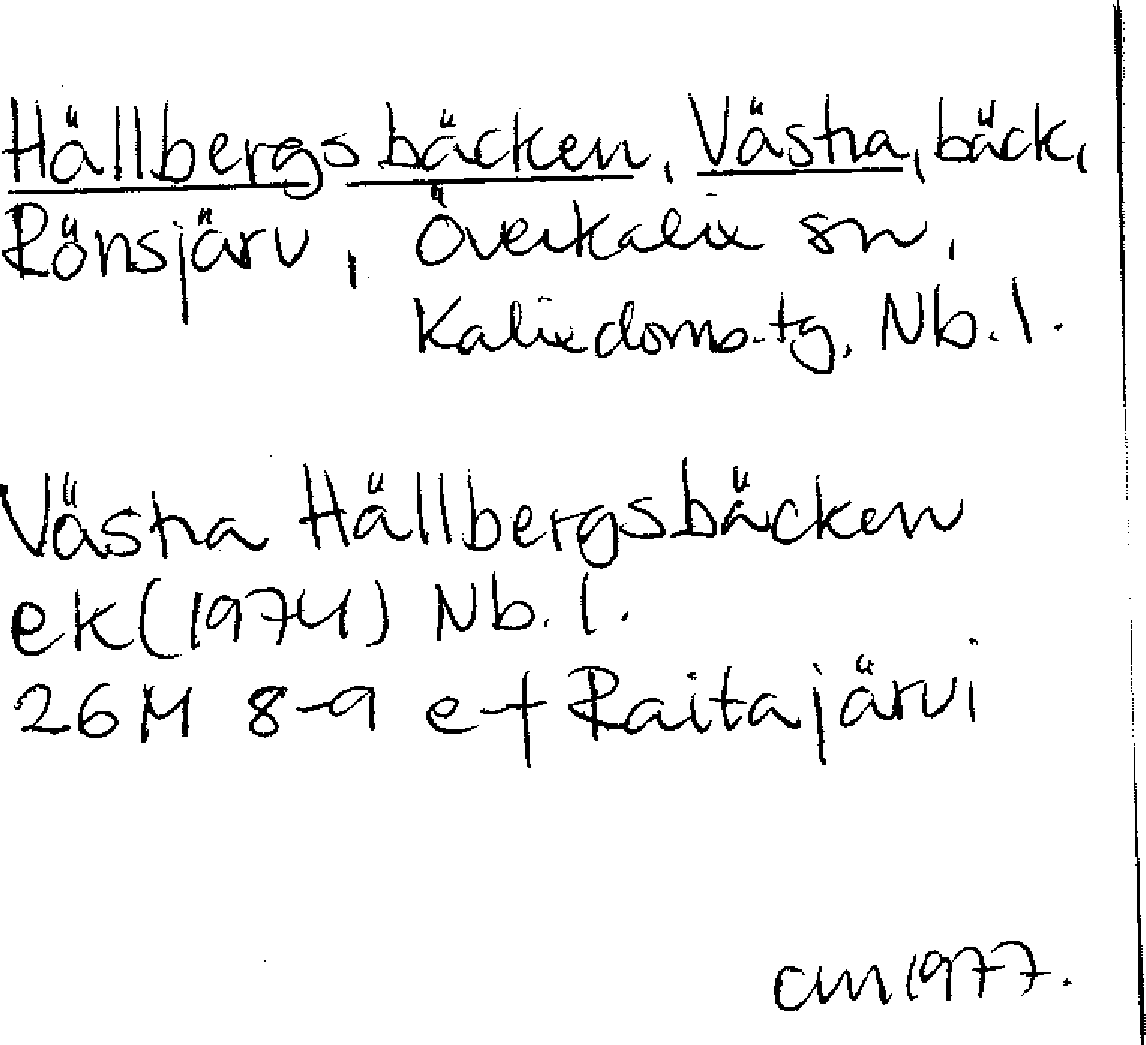 Hällbergsbäcken, Västra, bäck,
Rönsjärv, Överkalix sn,
Kalix doms.tg, Nb. l.
Västra Hällbergsbäcken
ek (1974) Nb. l.
26M 8-9 e-f Raitajärvi
CM 1977.